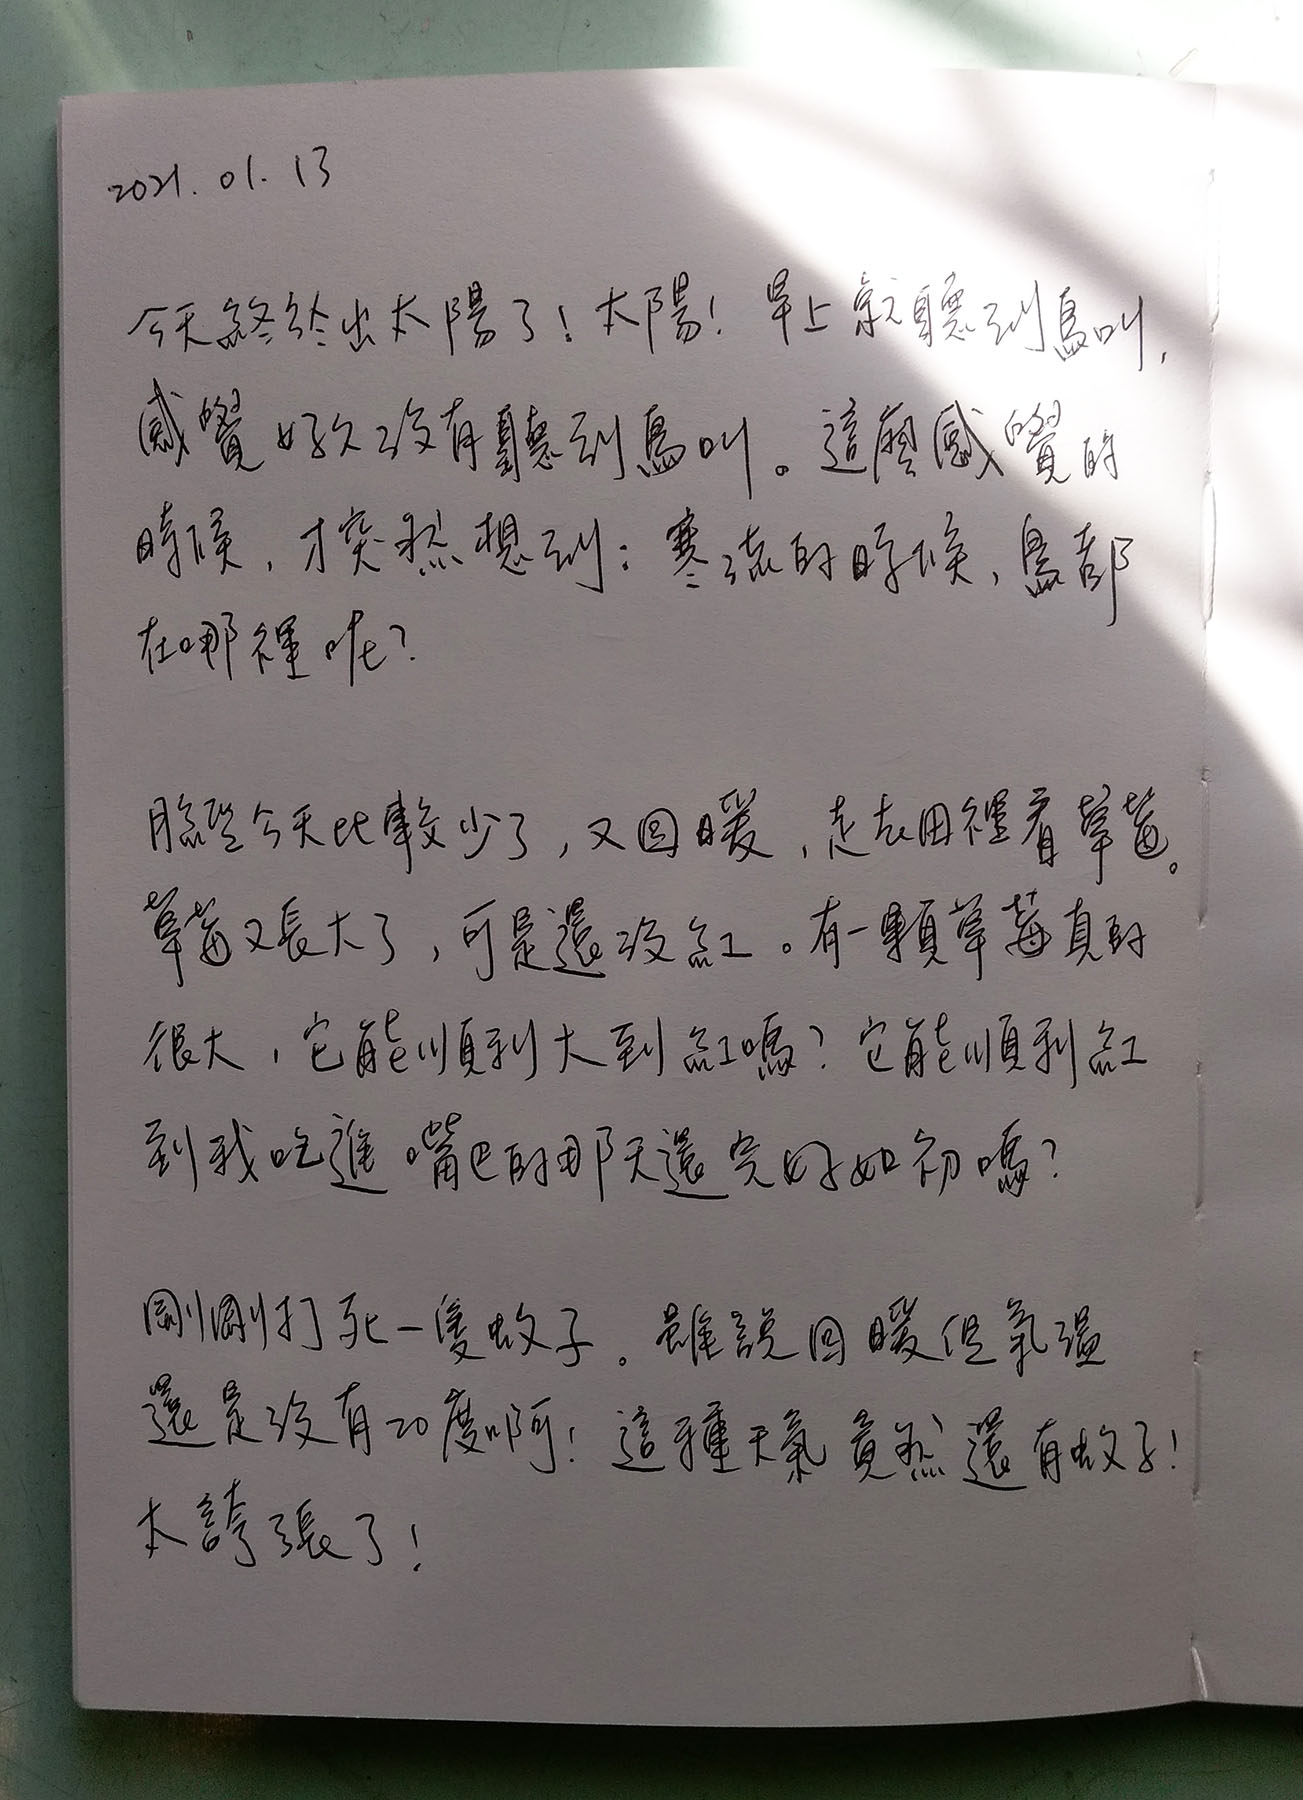 2021.01.13
今天終於出太陽了!太陽!早上就聽到鳥叫,
感覺好久沒有聽到鳥叫。這麼感覺的
時候,才突然想到:寒流的時候,鳥都
在哪裡呢?
腦塗今天比較少了,又回暖,走去田裡看草莓。
草莓又長大了,可是還沒紅。有一顆草莓真的
很大,它能順利大到紅嗎?它能順利紅
到我吃進嘴巴的那天還完好如初嗎?
剛剛打死一隻蚊子。雖說回暖但氣溫
還是沒有20度啊!這種天氣竟然還有蚊子!
太誇張了!